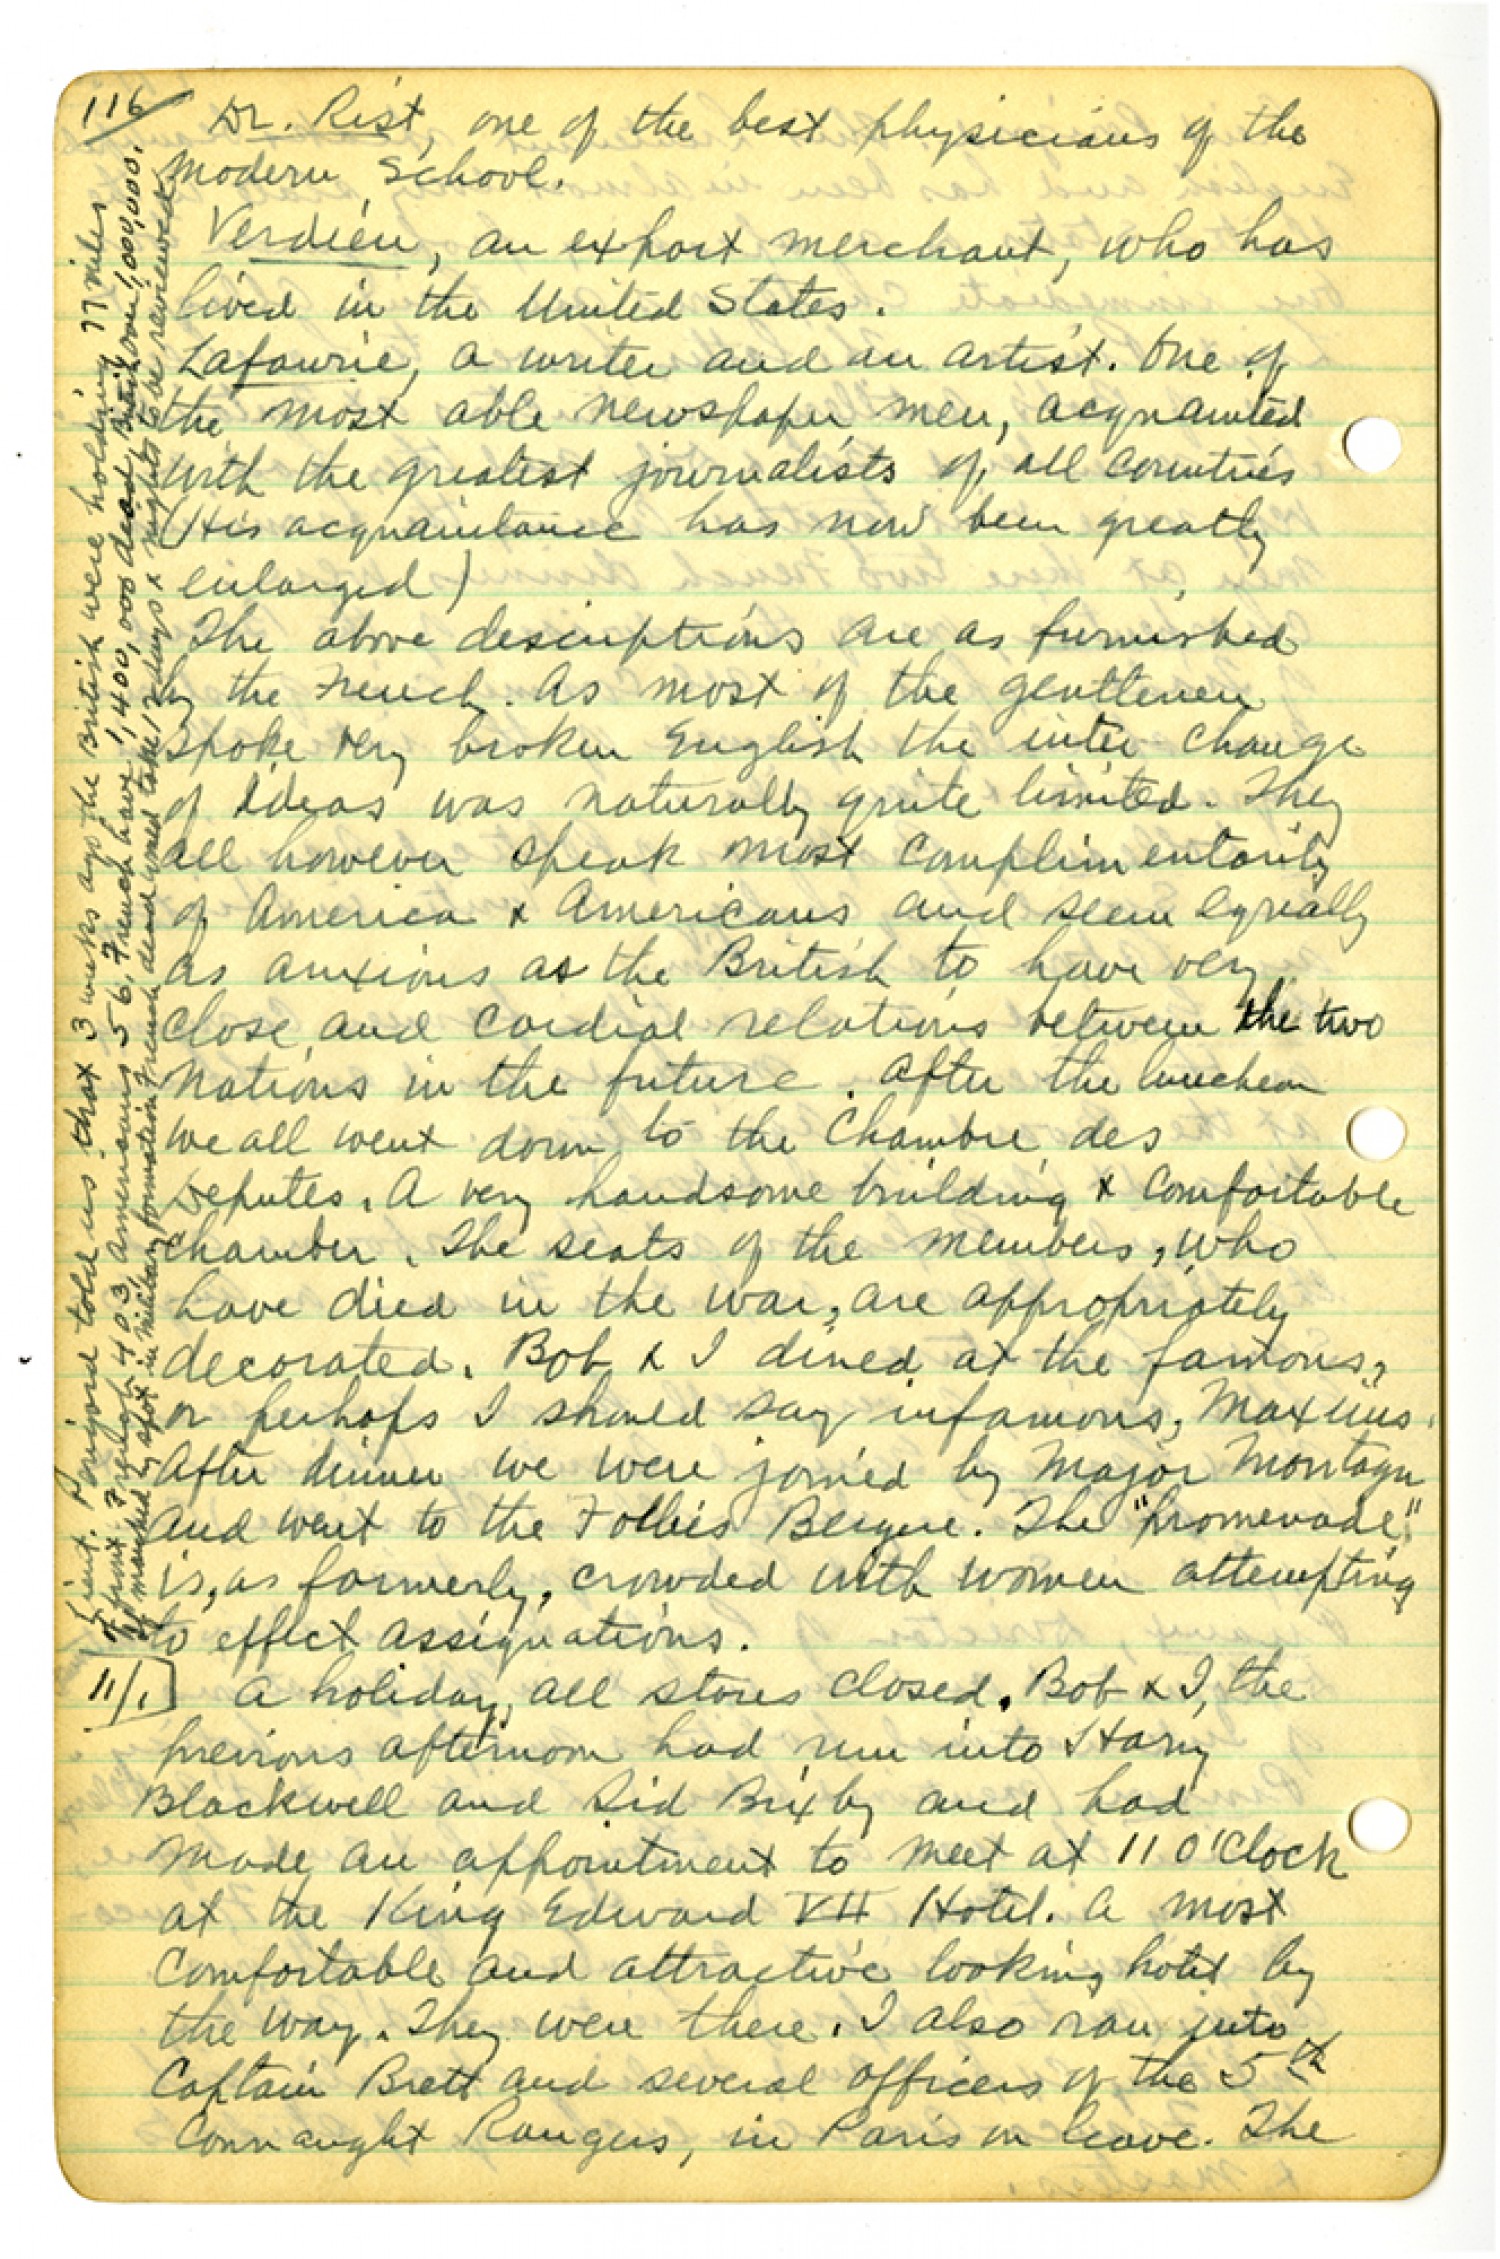 116
Dr. Rist, one of the best physicians of the
Modern School.
Verdiéu, an export merchant, who has
lived in the United States.
Lafourie, a writer and an artist. One of
the most able newspaper men, acquainted
with the greatest journalists of all countries
(His acquaintance has now been greatly
enlarged)
The above descriptions are as furnished
by the French. As most of the gentlemen
spoke very broken English the inter change
of ideas was naturally quite limited. They
all however speak most complimentarily
of America & Americans and seem equally
as anxious as the British to have very
close and cordial relations between the two
nations in the future. After the luncheon
we all went down to the Chambre des
Deputes. A very handsome building & comfortable
chamber. The seats of the members, who
have died in the war, are appropriately
decorated. Bob & I dined at the famous,
or perhaps I should say infamous, Maxims.
After dinner we were joined by Major Montagu
and went to the Follies Bergere. The "promenade"
is, as formerly, crowded with women attempting
to effect assignations.
11/1] A holiday, all stores closed. Bob & I, the
previous afternoon had run into Harry
Blackwell and Sid Bixby and had
made an appointment to meet at 11 O'Clock
at the King Edward VII Hotel. A most
comfortable and attractive looking hotel by
the way. They were there. I also ran into
Captain Brett and several officers of the 5th
Connaught Rangers, in Paris on leave. The
Lieut. Perijord told us that 3 weeks ago the British were holding 77 miles
of front French 403, Americans 56, French have 1,400,000 dead, British over 1,000,000.
If marched by spot in military formation French dead would take 12 days & nights to be reviewed.